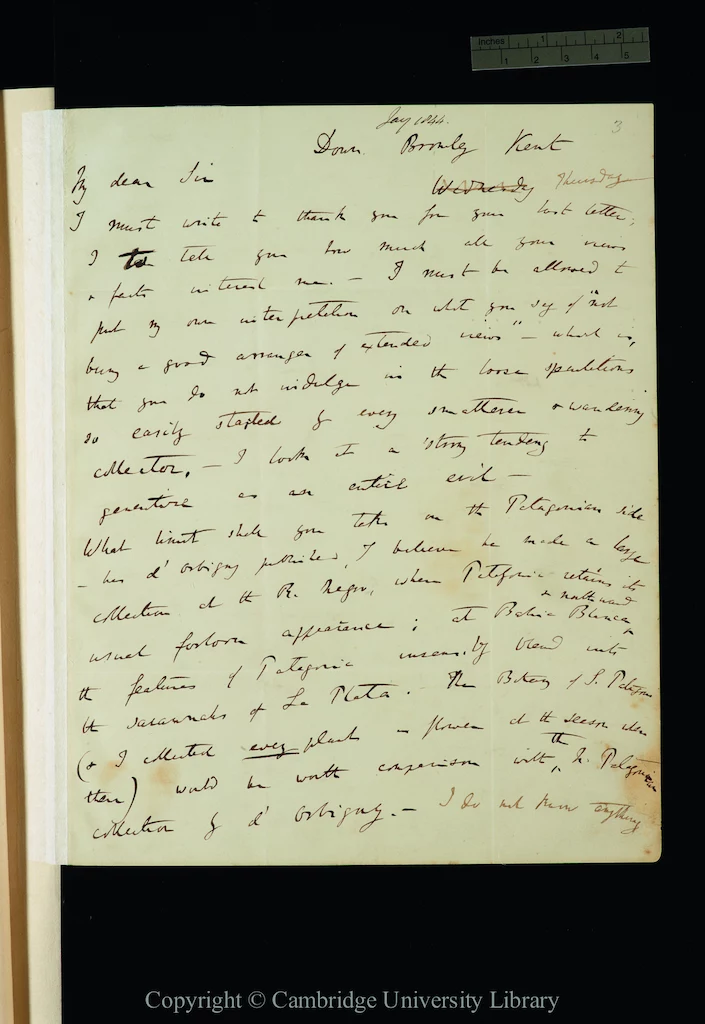 Inches 1 2
1 2 3 4 5
Jany 1844.
3
Down. Bromley Kent
My dear Sir
Wednesday Thursday
I must write to thank you for your last letter;
I to tell you how much all your views
& facts interest me. — I must be allowed to
put my own interpretation on what you say of "not
being a good arranger of extended views" — which is,
that you do not indulge in the loose speculations
so easily started by every smatterer & wandering
collector. — I look at a strong tendency to
generalise as an entire evil —
What limit shall you take on the Patagonian side
— has d'Orbigny published, I believe he made a large
collection at the R. Negro, where Patagonia retains its
usual forlorn appearance; at Bahia Blanca & northward
the features of Patagonia insensibly blend into
the savannahs of La Plata. — The Botany of S. Patagonia
(& I collected every plant in flower at the season when
there) would be worth comparison with the N. Patagonian
collection by d'Orbigny. — I do not know anything
Copyright © Cambridge University Library